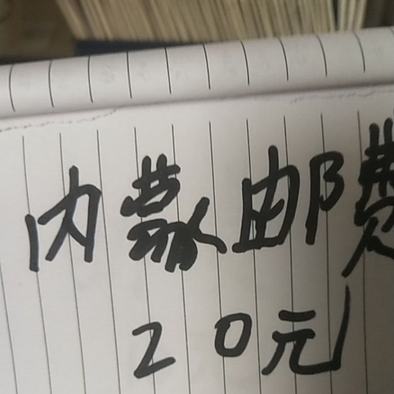 内蒙邮费
20元